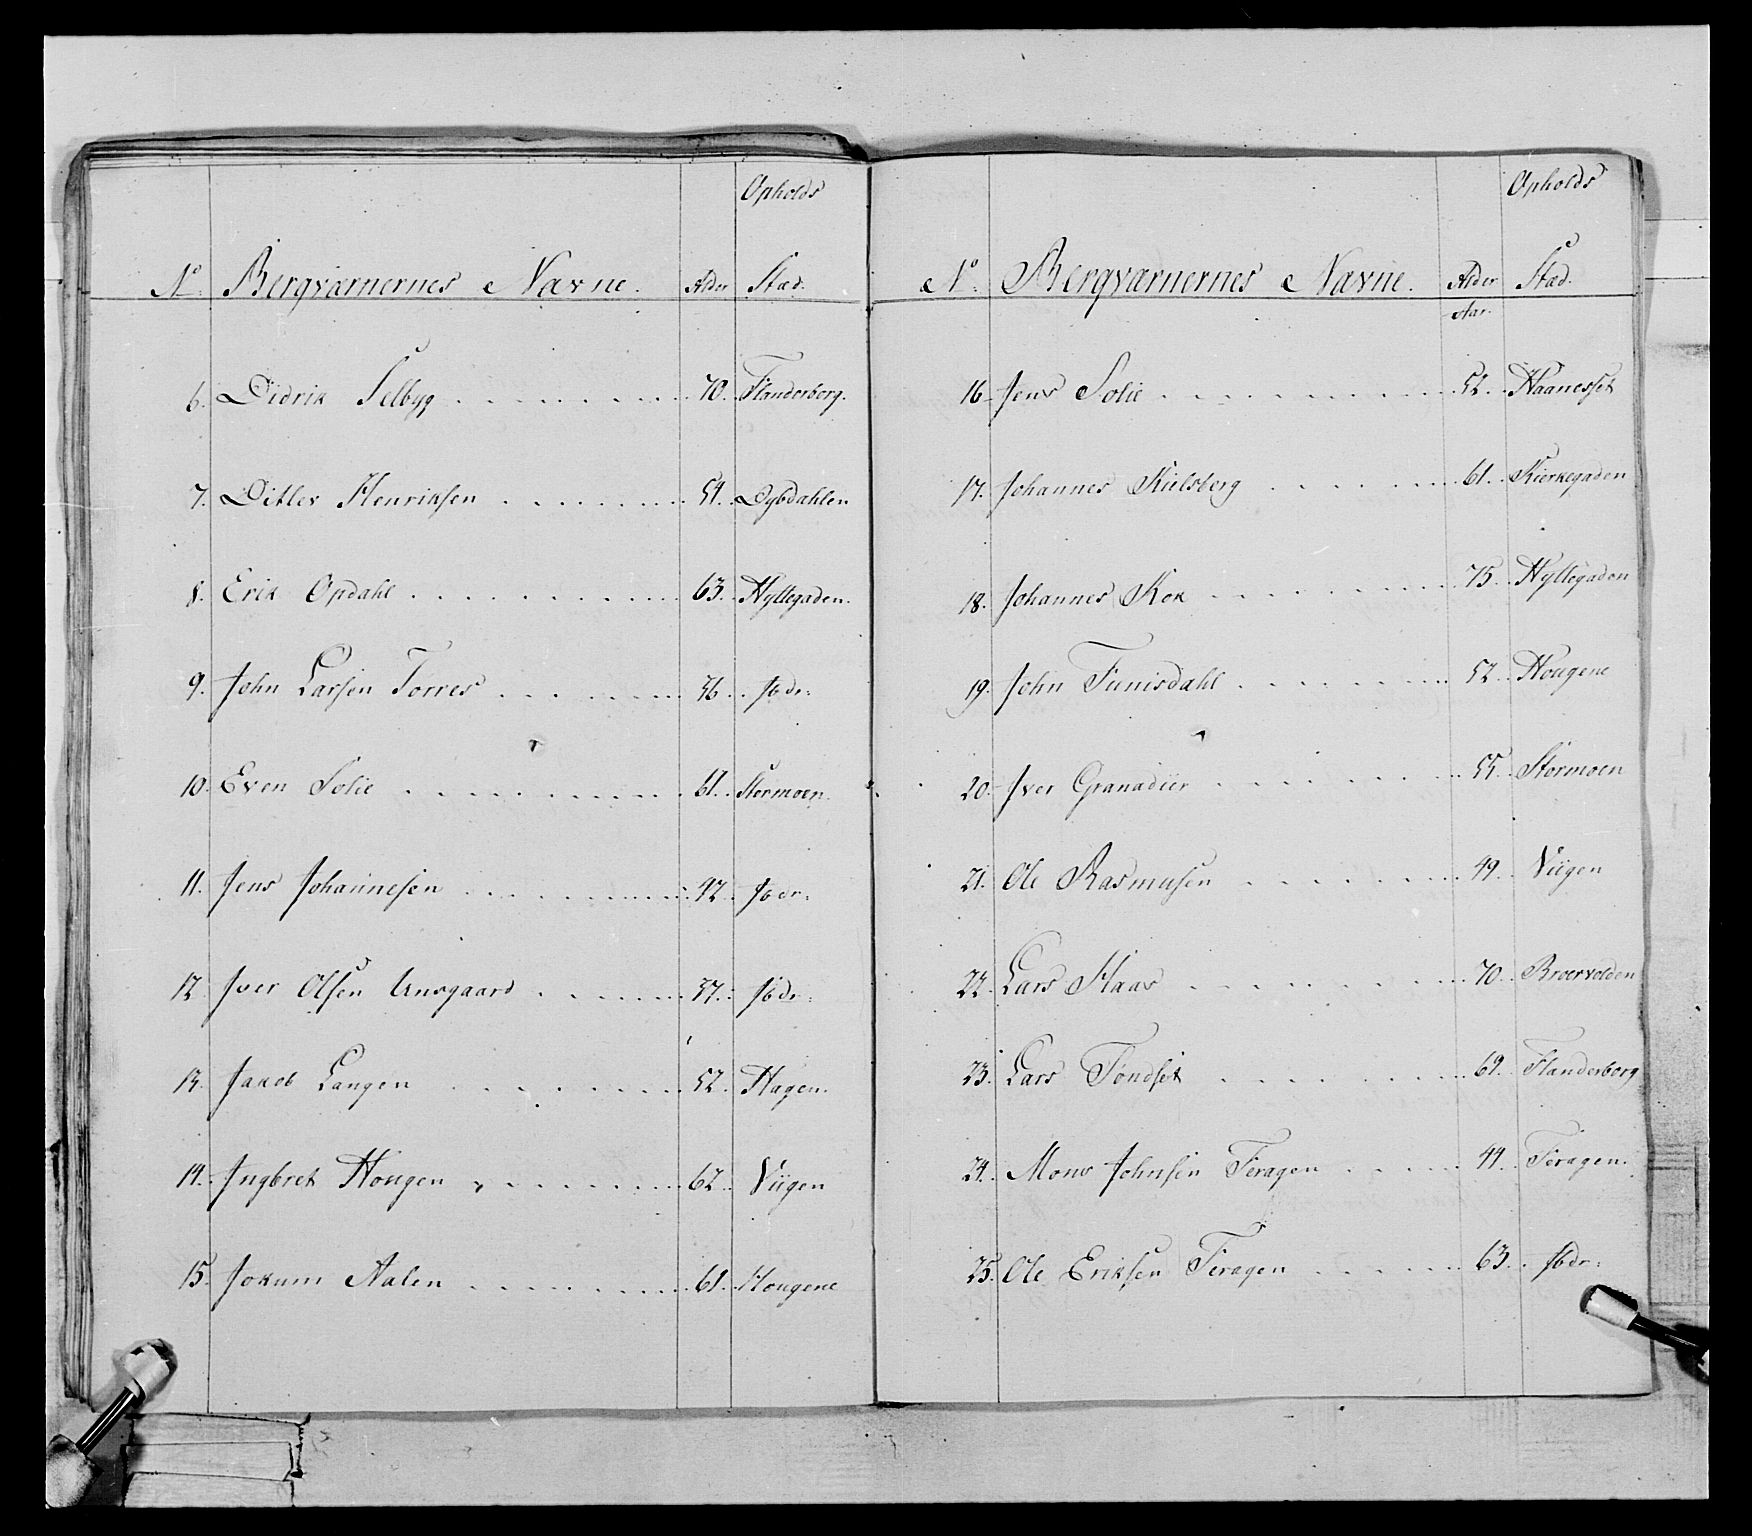 Opholds
No. Bergværnernes Navne. Alder Stad.
6. Didrik Selbyg 70. Flanderborg.
7. Ditlev Henriksen 54. Dybdahlen
8. Erik Opdahl 63. Hyttegaden.
9. John Larsen Torres 56. Ibdr:
10. Even Solie 61. Stormoen.
11. Jens Johannesen 42. Ibdr:
12. Iver Olsen Unsgaard 57. Ibdr:
13. Jakob Langen 52. Hagen.
14. Ingbret Hougen 62. Viigen
15. Jokum Aalen 61. Hougene
Opholds
No. Bergværnernes Navne. Alder Stad.
Aar.
16. Jens Solie 52. Haanesset
17. Johannes Kulsberg 61. Kierkegaden
18. Johannes Kok 75. Hyttegaden
19. John Funisdahl 52. Hougene
20. Iver Granadiir 55. Stormoen
21. Ole Rasmusen 49. Viigen
22. Lars Haas 70. Broervolden
23. Lars Tondset 69. Flanderborg
24. Mons Johnsen Feragen 44. Feragen.
25. Ole Eriksen Feragen 63. Ibdr: